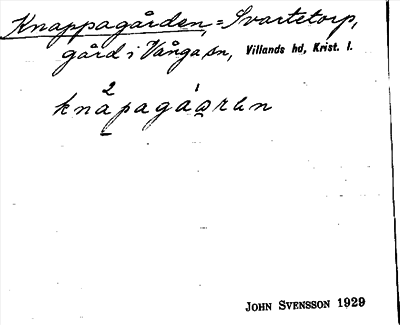 Knappagården, = Svartetorp,
gård i Vånga sn, Villands hd, Krist. l.
JOHN SVENSSON 1929